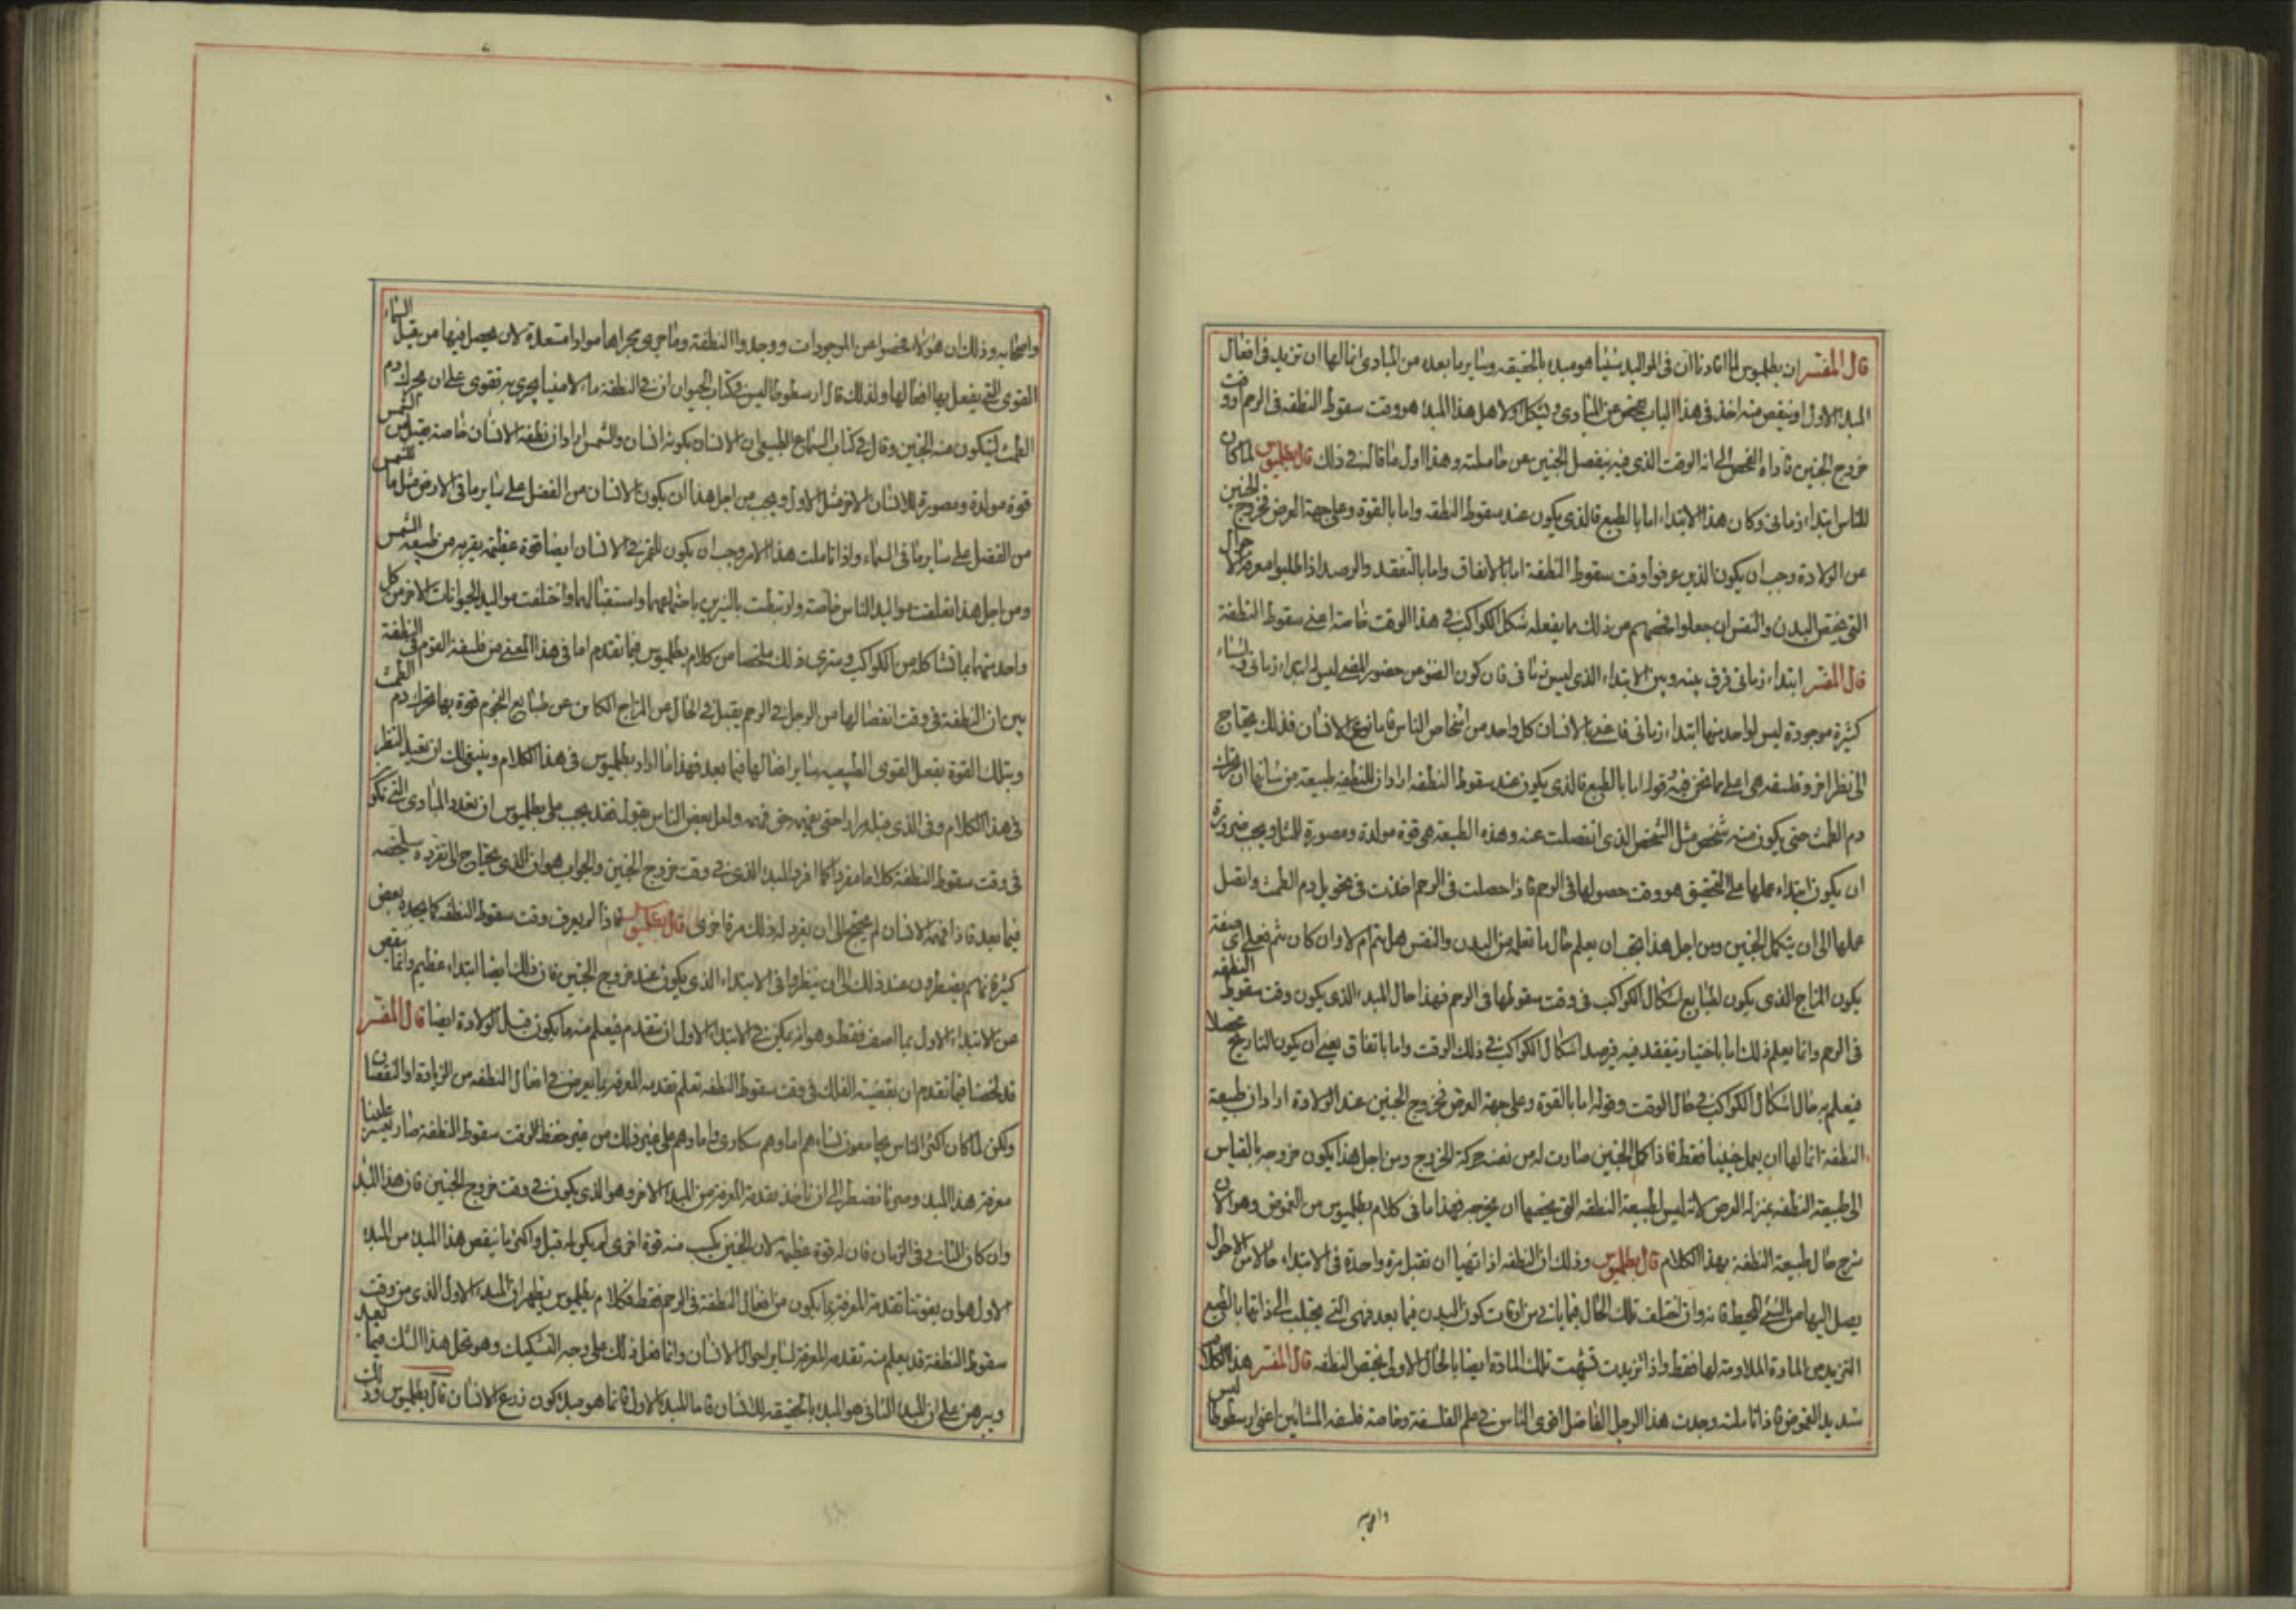 قال المفسر ان بطلميوس لما افادنا ان فى المواليد شيئا هو مبدء بالحقيقه وساير ما بعده من المبادى انما لها ان تزيد فى افعال
المبدء الاول او تنقص منه اخذ فى هذا الباب يفحص عن المبادى ويشكل اولا هل هذا المبدء هو وقت سقوط النطفه فى الرحم او وقت
خروج الجنين فاداه الفحص الى انه الوقت الذى فيه ينفصل الجنين عن حاملته وهذا اول ما قاله فى ذلك قال بطلميوس لما كان
للناس ابتداء زمانى وكان هذا الابتداء اما بالطبع فالذى يكون عند سقوط النطفه واما بالقوة وعلى جهة العرض فخروج الجنين
عن الولادة وجب ان يكون الذين عرفوا وقت سقوط النطفة اما بالاتفاق واما بالتفقد والرصد اذا طلبوا معرفة الاحوال
التى تختص البدن والنفس ان جعلوا فحصهم من ذلك ما يفعله شكل الكواكب فى هذا الوقت خاصة اعنى سقوط النطفة
قال المفسر ابتداء زمانى فرق بينه وبين الابتداء الذى ليس زمانى فان كون الضوء من حضور المضئ ليس له ابتداء زمانى
كثيرة موجودة ليس لواحد منها ابتداء زمانى فاعنى بالانسان كل واحد من اشخاص الناس فاما نوع الانسان فذلك يحتاج
الى نظر اخر وفلسفه هى اعلى مما نحن فيه وقوله اما بالطبع فالذى يكون عند سقوط النطفه اراد ان للنطفه طبيعة من شانها ان تحرك
دم الطمث حتى يكون منه شخص مثل الشخص الذى انفصلت عنه وهذه الطبيعة هى قوة مولدة ومصورة للمثل ويجب ضرورة
ان يكون ابتداء عملها على التحقيق هو وقت حصولها فى الرحم فاذا حصلت فى الرحم اخذت فى تحويل دم الطمث واتصل
عملها الى ان يتكمل الجنين ومن اجل هذا يجب ان يعلم حال ما تعمله من البدن والنفس هل يتم ام لا وان كان يتم فعلى اى صفة
يكون المزاج الذى يكون لطبايع اشكال الكواكب فى وقت سقوطها فى الرحم فهذا حال المبدء الذى يكون وقت سقوط النطفه
فى الرحم وانما يعلم ذلك اما باختيار يتفقد فيه فيرصد اشكال الكواكب فى ذلك الوقت واما باتفاق يعنى ان يكون التاريخ محصلا
فيعلم به حال اشكال الكواكب فى حال الوقت وقوله اما بالقوة وعلى جهة العرض فخروج الجنين عند الولادة اراد ان طبيعة
النطفة انما لها ان يعمل جنينا فقط فاذا كمل الجنين صارت له من نفسه حركة الخروج ومن اجل هذا يكون خروجه بالقياس
الى طبيعة النطفه بمنزلة العرض لانه ليس لطبيعة النطفه التى يخصها ان يخرجه فهذا ما فى كلام بطلميوس من الغموض وهو الان
شرح حال طبيعة النطفة بهذا الكلام قال بطلميوس وذلك ان النطفه اذا تهيا ان تقبل مرة واحدة فى الابتداء حالا من الاحوال
يصل اليها من الشئ المحيط فانه وان اختلف تلك الحال فيما ياتى من اوقات كون البدن فيما بعد فهى التى يجتلب الى ذاتها بالطبع
التزيد من المادة الملاومة لها فقط واذا تزيدت شبهت تلك المادة ايضا بالحال الاولى يختص النطفه قال المفسر هذا الكلام
شديد الغموض فاذا تاملته وجدت هذا الرجل الفاضل اقوى الناس فى علم الفلسفة وخاصة فلسفه المشائين اعنى ارسطوطاليس
واصحابه
واصحابه وذلك ان هؤلاء فحصوا عن الموجودات ووجدوا النطفة وما جرى مجراها موادا مستعدة لان يحصل فيها من قبل السماء
القوى التى يفعل بها افعالها ولذلك قال ارسطوطاليس فى كتاب الحيوان ان فى النطفة ماء لامنيا يجرى به تقوى على ان يحرك دم
الطمث ليتكون منه الجنين وقال فى كتاب السماع الطبيعى ان الانسان يكونه انسان والشمس اراد ان نطفة الانسان خاصة يقبل من الشمس
قوة مولدة ومصورة للانسان الاخر مثل الاول ويجب من اجل هذا ان يكون الانسان من الفضل على ساير ما فى الارض مثل ما للشمس
من الفضل على ساير ما فى السماء واذا تاملت هذا الامر وجب ان يكون للقمر فى الانسان ايضا قوة عظيمه بقربه من طبيعه الشمس
ومن اجل هذا تعلقت مواليد الناس خاصة وارتبطت بالنيرين باجتماعهما واستقبالهما واختلفت مواليد الحيوانات الاخر من كل
واحد منهما بما شاكله من الكواكب وسترى ذلك ملخصا من كلام بطلميوس فيما تقدم اما فى هذا المعنى من فلسفة القوم فى النطفة
بين ان النطفة فى وقت انفصالها من الرجل فى الرحم يقبل فى الحال من المزاج الكاين من طبايع النجوم قوة بها تحرك دم الطمث
وبتلك القوة يفعل القوى الطبيعيه ساير افعالها فيما بعد فهذا ما اراد بطلميوس فى هذا الكلام وينبغى لك ان تعيد النظر
فى هذا الكلام وفى الذى قبله مرارا حتى تفهمه حق فهمه ولعل بعض الناس يقول فقد يجب على بطلميوس ان يعدد المبادى التى تكون
فى وقت سقوط النطفة كلاما مفردا كما افرد المبدء الذى فى وقت خروج الجنين والجواب هو ان الذى يحتاج الى تفرده سيلخصه
فيما بعد فاذا فهمه الانسان لم يحتج الى ان يفرد له ذلك مرة اخرى قال بطلميوس فاذا لم يعرف وقت سقوط النطفه كما يجده بعض
كثيرة فانهم يضطرون عند ذلك الى ان ينظروا فى الابتداء الذى يكون عند خروج الجنين فان ذلك ايضا ابتداء عظيم وانما ينقص
من الابتداء الاول بما اصف فقط وهو انه يمكن فى الابتداء الاول ان يتقدم فيعلم منه ما يكون قبل الولادة ايضا قال المفسر
قد لخصنا فيما تقدم ان بقضية الفلك فى وقت سقوط النطفه تعلم تقدمه المعرفه بما يعرض فى افعال النطفه من الزيادة او النقصان
ولكن لما كان اكثر الناس يجامعون نساءهم اما وهم سكارى واما وهم على غير ذلك من غير حفظ لوقت سقوط النطفة صار يعسر علينا
معرفة هذا المبدء وصرنا نضطر الى ان ناخذ تقدمة المعرفة من المبدء الاخر وهو الذى يكون فى وقت خروج الجنين فان هذا المبدء
وان كان الثانى فى الزمان فان له قوة عظيمة لان الجنين يكسب منه قوة اخرى لم يكن له قبل واكثر ما ينقص هذا المبدء من المبدء
الاول هو ان يفوتنا تقدمة المعرفة بما يكون من افعال النطفة فى الرحم فقط فكلام بطلميوس يظهر ان المبدء الاول الذى من وقت
سقوط النطفة قد يعلم منه تقدمه المعرفة لساير احوال الانسان وانما فعل ذلك على وجه التشكيك وهو يحل هذا الشك فيما بعد
ويبرهن على ان المبدء الثانى هو المبدء بالحقيقه للانسان فاما المبدء الاول فانما هو مبدء كون زرع الانسان قال بطلميوس وذلك